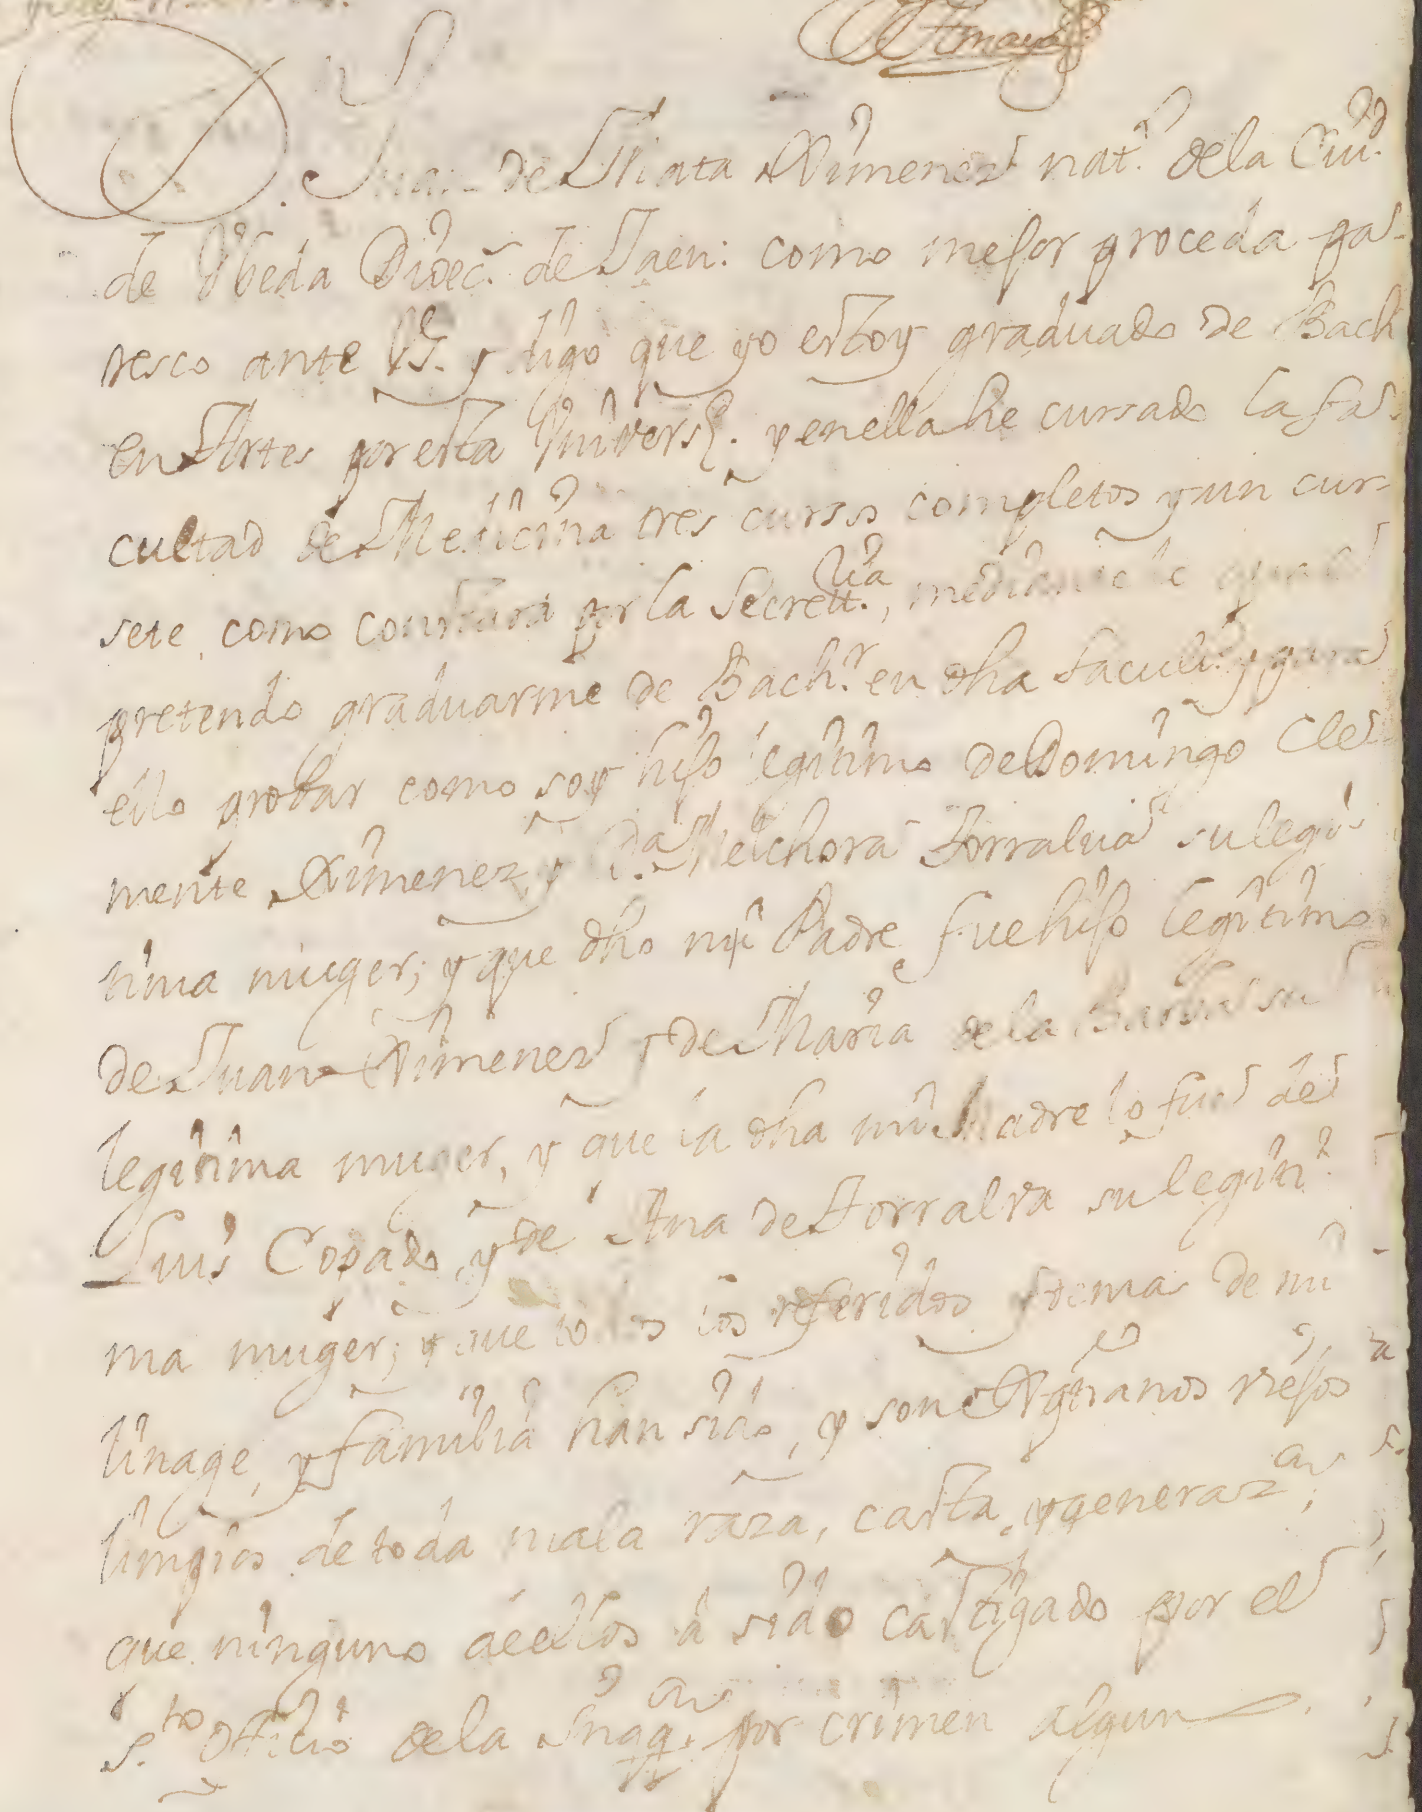 Amaya
D. Juan de Mata Ximenez nat.l de la Ciud.
de Vbeda Dioec. de Jaen: como mejor proceda pa-
resco ante VS. y digo que yo estoy graduado de Bach
en Artes por esta Univers.d y en ella he cursado la fa-
cultad de Medicina tres cursos completos y un cur-
sete, como constara por la Secrett.ria, mediante lo qual
pretendo graduarme de Bach.r en dha facult.d y para
ello probar como soy hijo legitimo de Domingo Cle-
mente Ximenez, y D.a Melchora Torralva su legi-
tima muger; y que dho mi Padre fue hijo legitimo
de Juan Ximenez y de Maria de la Barba su
legitima muger, y que la dha mi Madre lo fue de
Luis Copado, y de Ana de Torralva su legiti-
ma muger; y que todos los referidos y demas de mi
linage, y familia han sido, y son Xptianos viejos
limpios de toda mala raza, casta, y generaz.on,
que ninguno de ellos á sido castigado por el
S.to Oficio de la Inqq.on por crimen alguno.